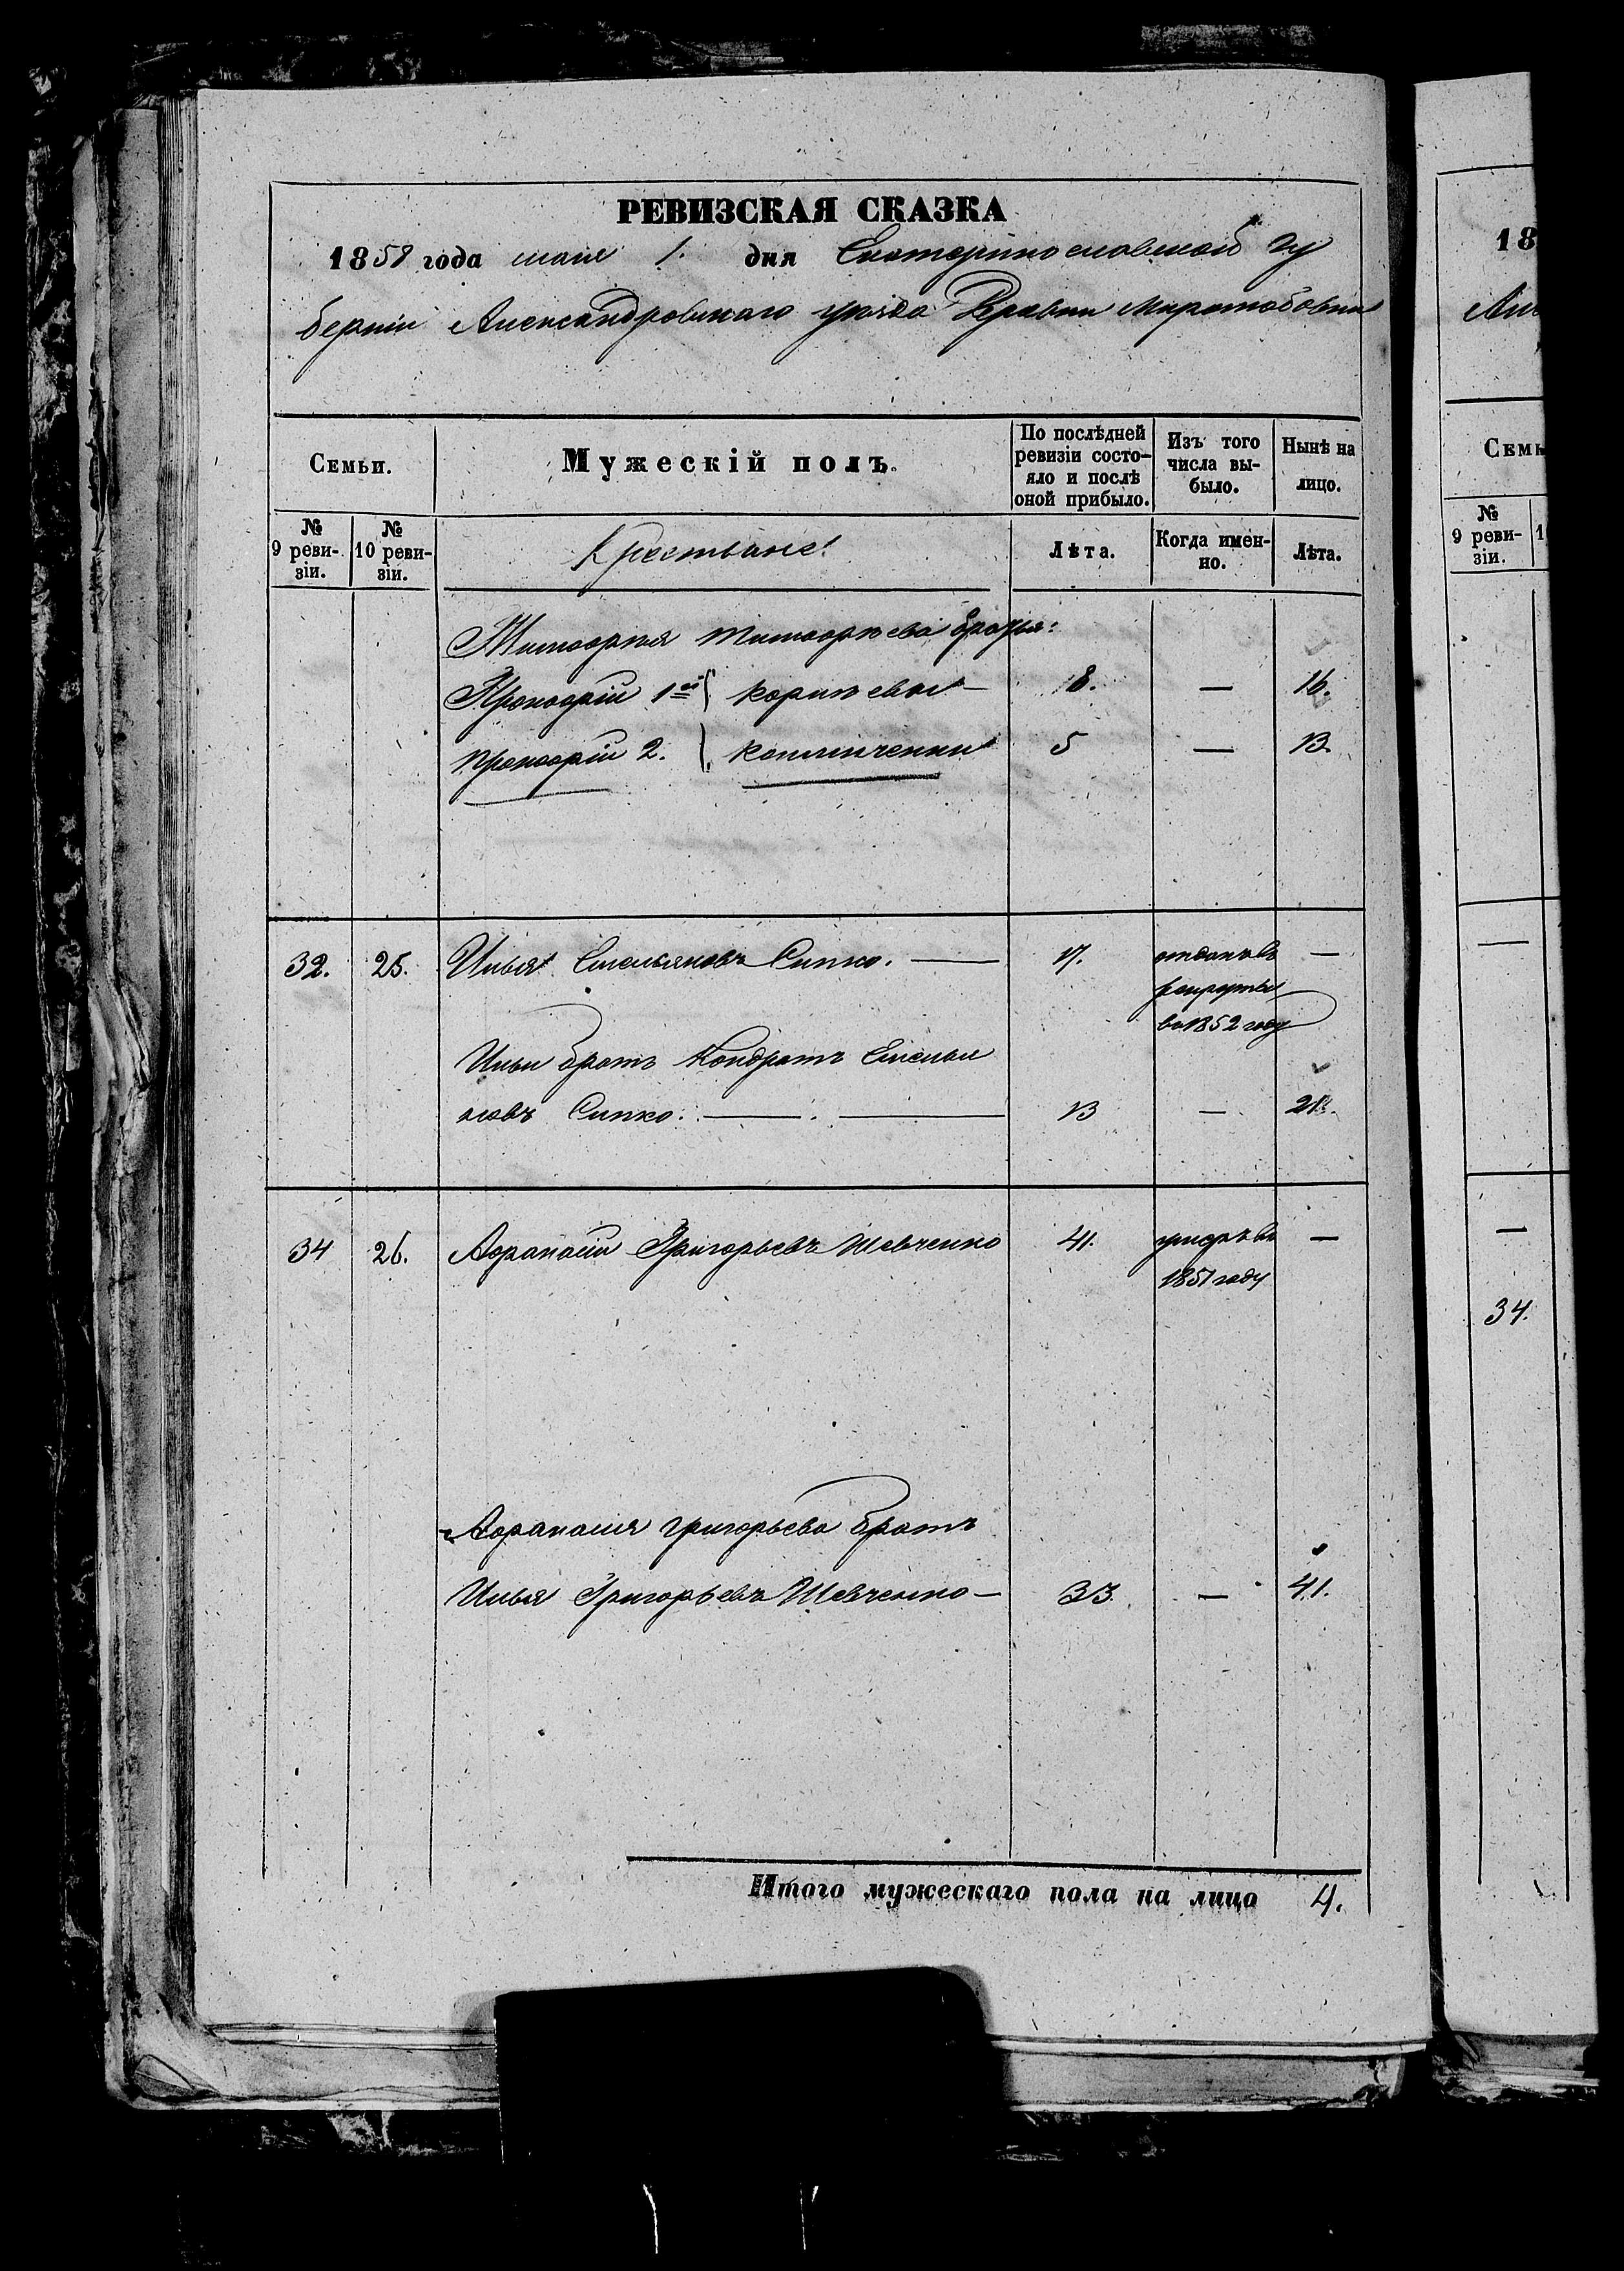 РЕВИЗСКАЯ СКАЗКА
1858 года мая 1. дня Екатеринославской гу
берніи Александровскаго уѣзда Деревни
Семьи.
Мужескій полъ.
По послѣдней ревизіи состо-
яло и послѣ
оной прибыло.
Изъ того
числа вы-
было.
Нынѣ на
лицо.
№
9 реви-
зіи.
№
10 реви-
зіи.
Крестьяне.
Лѣта.
Когда имен-
но.
Лѣта.
Тимофея Тимофѣева братья:
Прокофій 1й 8. — 16.
Прокофій 2. 5 — 13.
32. 25. Илья Емельяновъ Сипко. — 17. отданъ въ —
рекруты
въ 1852 году
Ильи братъ Кондратъ Емелья
новъ Сипко. — . — 13 — 21.
34 26. Афанасій Григорьевъ Шевченко 41. умеръ въ —
1851 году
Афанасія Григорьева братъ
Илья Григорьевъ Шевченко — 33. — 41.
Итого мужескаго пола на лицо 4.
18
Семь
№
9 реви-
зіи.
1
—
—
34.